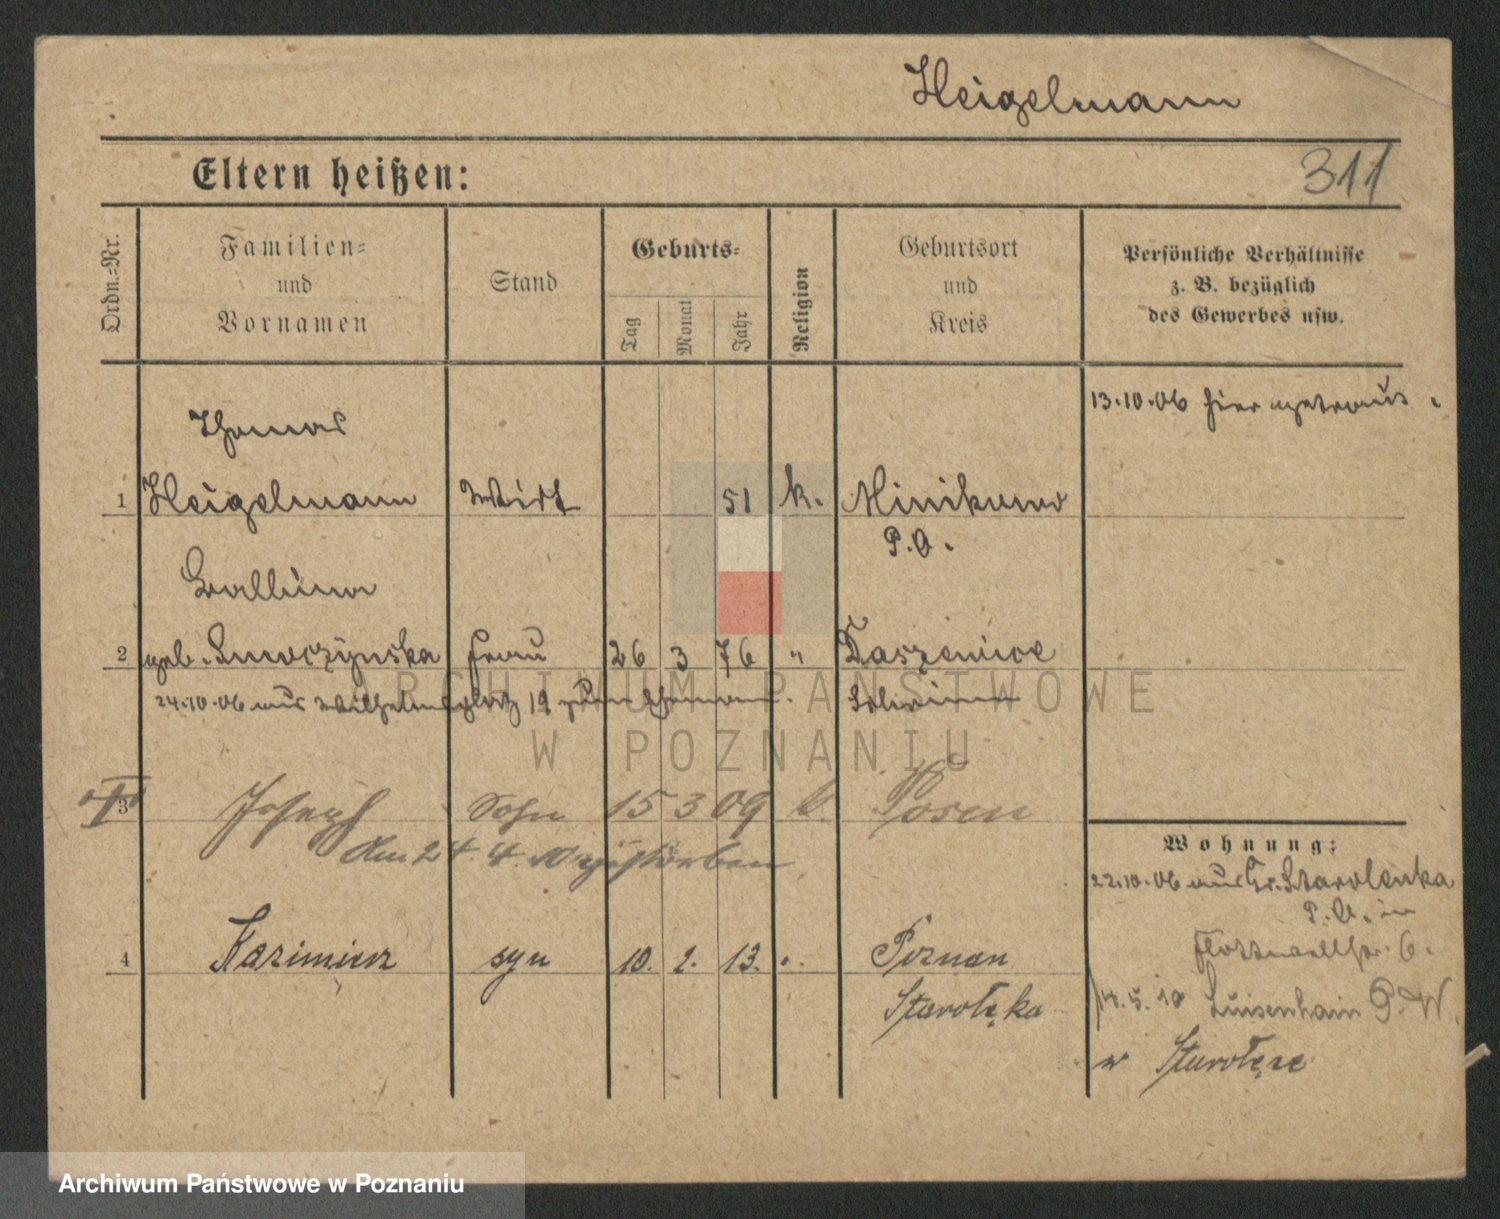 Heigelmann
Eltern heißen:
311
Ordn.-Nr.
Familien-
und
Vornamen
Stand
Geburts-
Tag
Monat
Jahr
Religion
Geburtsort
und
Kreis
Persönliche Verhältnisse
z. B. bezüglich
des Gewerbes usw.
13.10.06 hier
Thomas
1 Heigelmann Wirt 51 k. Minikowo
P.O.
Ballina
2 geb. Frau 26 3 76 "
24.10.06 aus Wilhelmsplatz 19
ARCHIWUM PAŃSTWOWE
W POZNANIU
3 Joseph Sohn 15 3 09 k. Posen
am 24.4.10 gestorben
Wohnung:
22.10.06 aus Gr. Starolenka
P.O. in
Flottwellstr. 6.
4 Kazimierz syn 10. 2. 13. Poznan
Starołęka
14.5.10 Luisenhain P.W.
w Starołęce
Archiwum Państwowe w Poznaniu